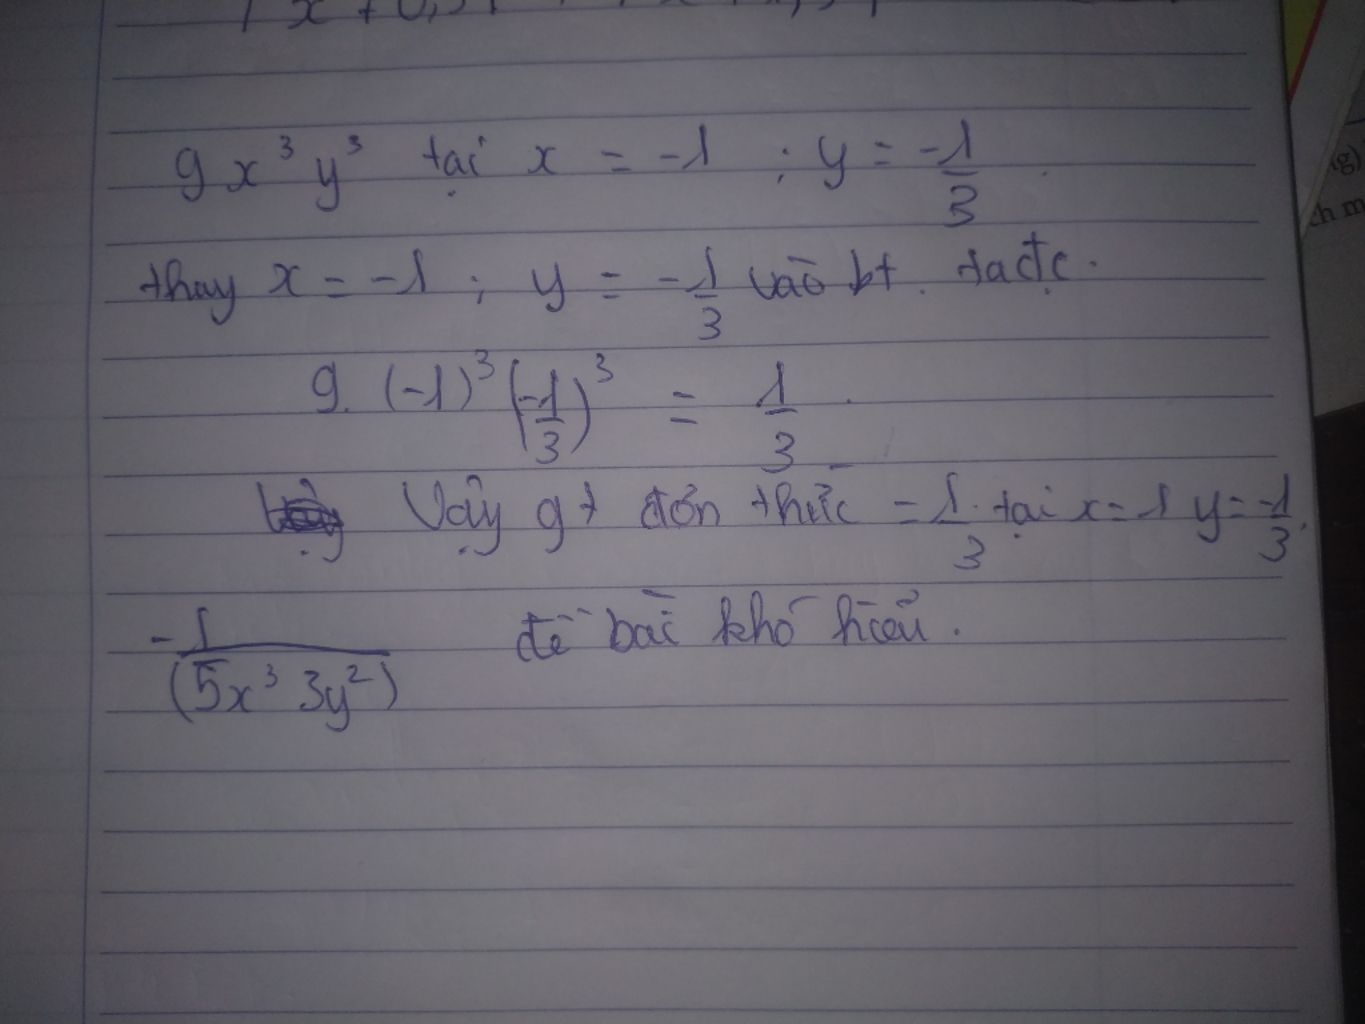 9x³y³ tại x = -1 ; y = -1/3
thay x = -1 ; y = -1/3 vào bt. ta đc.
9. (-1)³ (-1/3)³ = 1/3.
Vậy gt đơn thức = 1/3. tại x = -1 y = -1/3.
-1/(5x³ 3y²) đề bài khó hiểu.